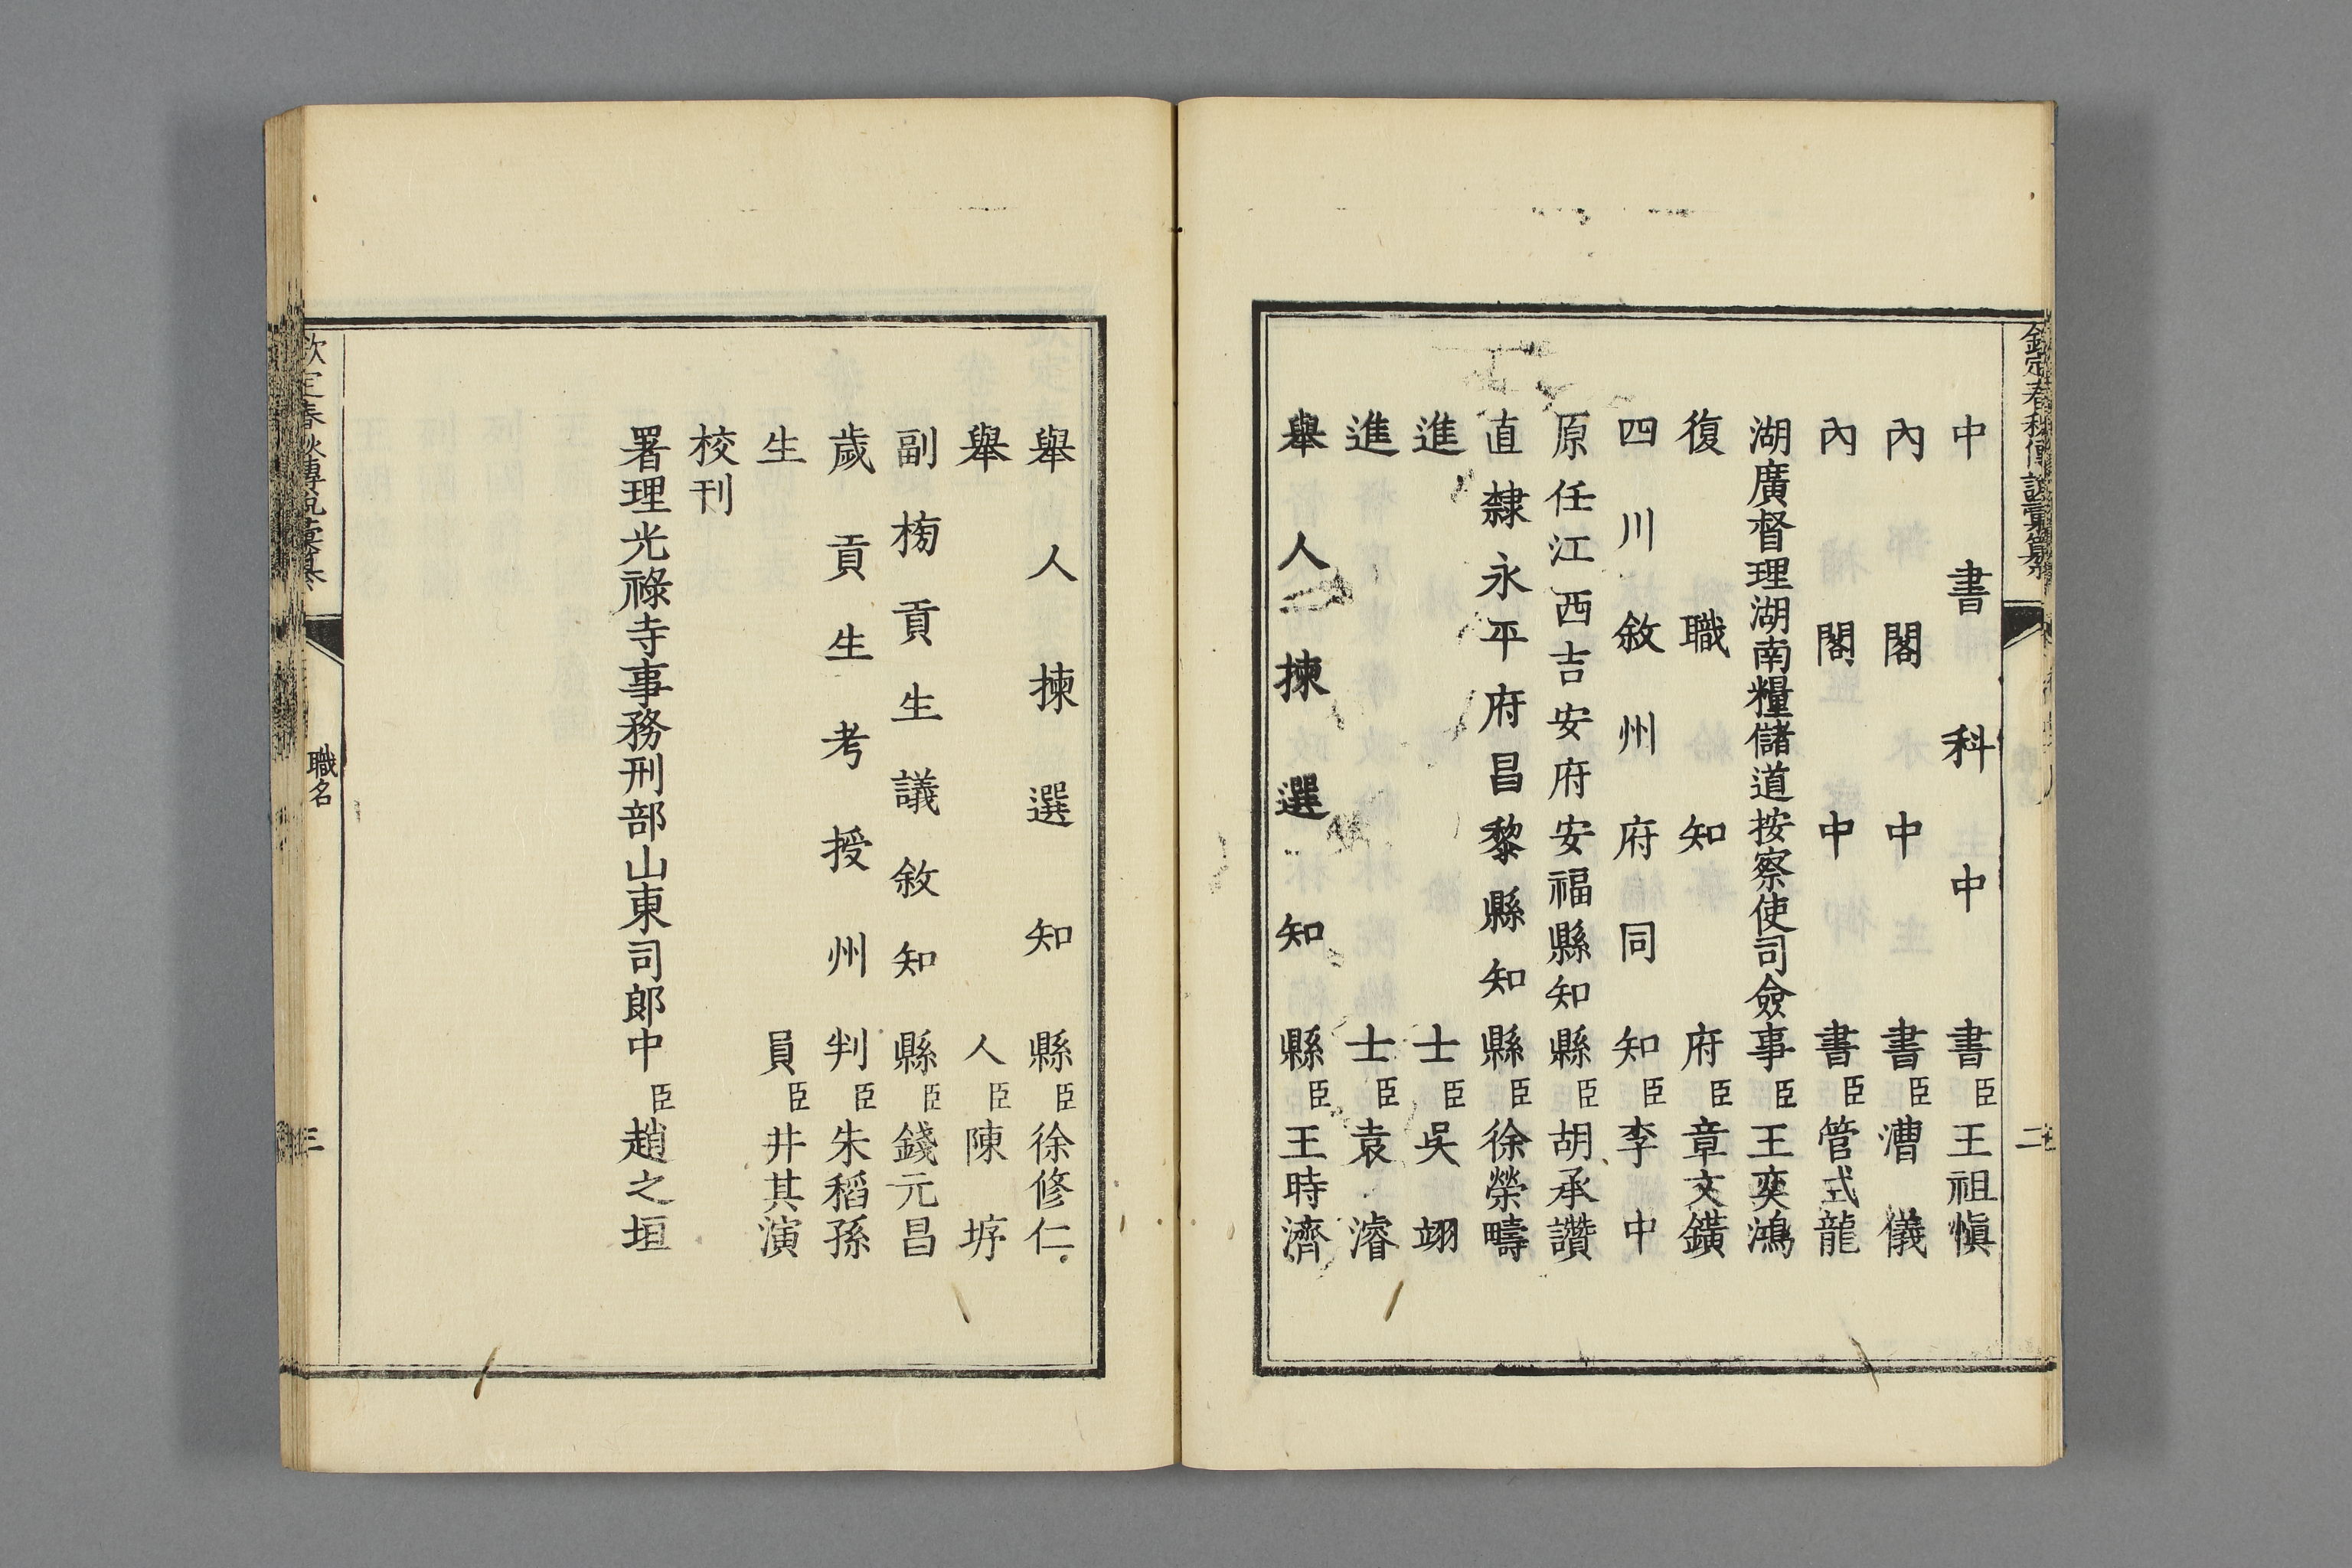 欽定春秋傳說彙纂
二
中書科中書臣王祖愼
內閣中書臣漕儀
內閣中書臣管式龍
湖廣督理湖南糧儲道按察使司僉事臣王奕鴻
復職知府臣章文鐄
四川敘州府同知臣李中
原任江西吉安府安福縣知縣臣胡承讚
直隸永平府昌黎縣知縣臣徐榮疇
進士臣吳翊
進士臣袁濬
舉人揀選知縣臣王時濟
舉人揀選知縣臣徐修仁
舉人臣陳㘧
副榜貢生議敘知縣臣錢元昌
歲貢生考授州判臣朱稻孫
生員臣井其演
校刊
署理光祿寺事務刑部山東司郎中臣趙之垣
欽定春秋傳說彙纂
職名
三